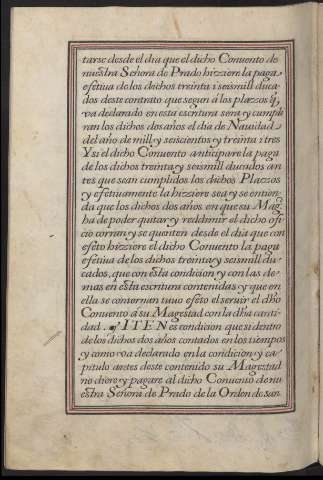 tarse desde el dia que el dicho Conuento de
nuestra Señora de Prado hizziere la paga
efetiua de los dichos treinta i seis mill duca
dos deste contrato que segun á los plazos q̃,
va declarado en esta escritura sera y cumpli
ran los dichos dos años el dia de Nauidad
del año de mill y seiscientos y treinta i tres
Y si el dicho Conuento anticipare la paga
de los dichos treinta y seis mill ducados an
tes que sean cumplidos los dichos Plazos
y efetiuamente la hizziere sea y se entien
da que los dichos dos años en que su Mag.
ha de poder quitar y reddimir el dicho ofi
cio corran y se quenten desde el dia que con
efeto hizziere el dicho Conuento la paga
efetiua de los dichos treinta y seis mill du
cados, que con esta condicion y con las de
mas en esta escritura contenidas y que en
ella se conternan tuuo efeto el seruir el dho
Conuento á su Magestad con la dha canti
dad. ITEN es condicion que si dentro
de los dichos dos años contados en los tiempos
y como va declarado en la condicion y ca
pitulo antes deste contenido su Magestad
no diere y pagare al dicho Conuento de nu
estra Señora de Prado de la Orden de san